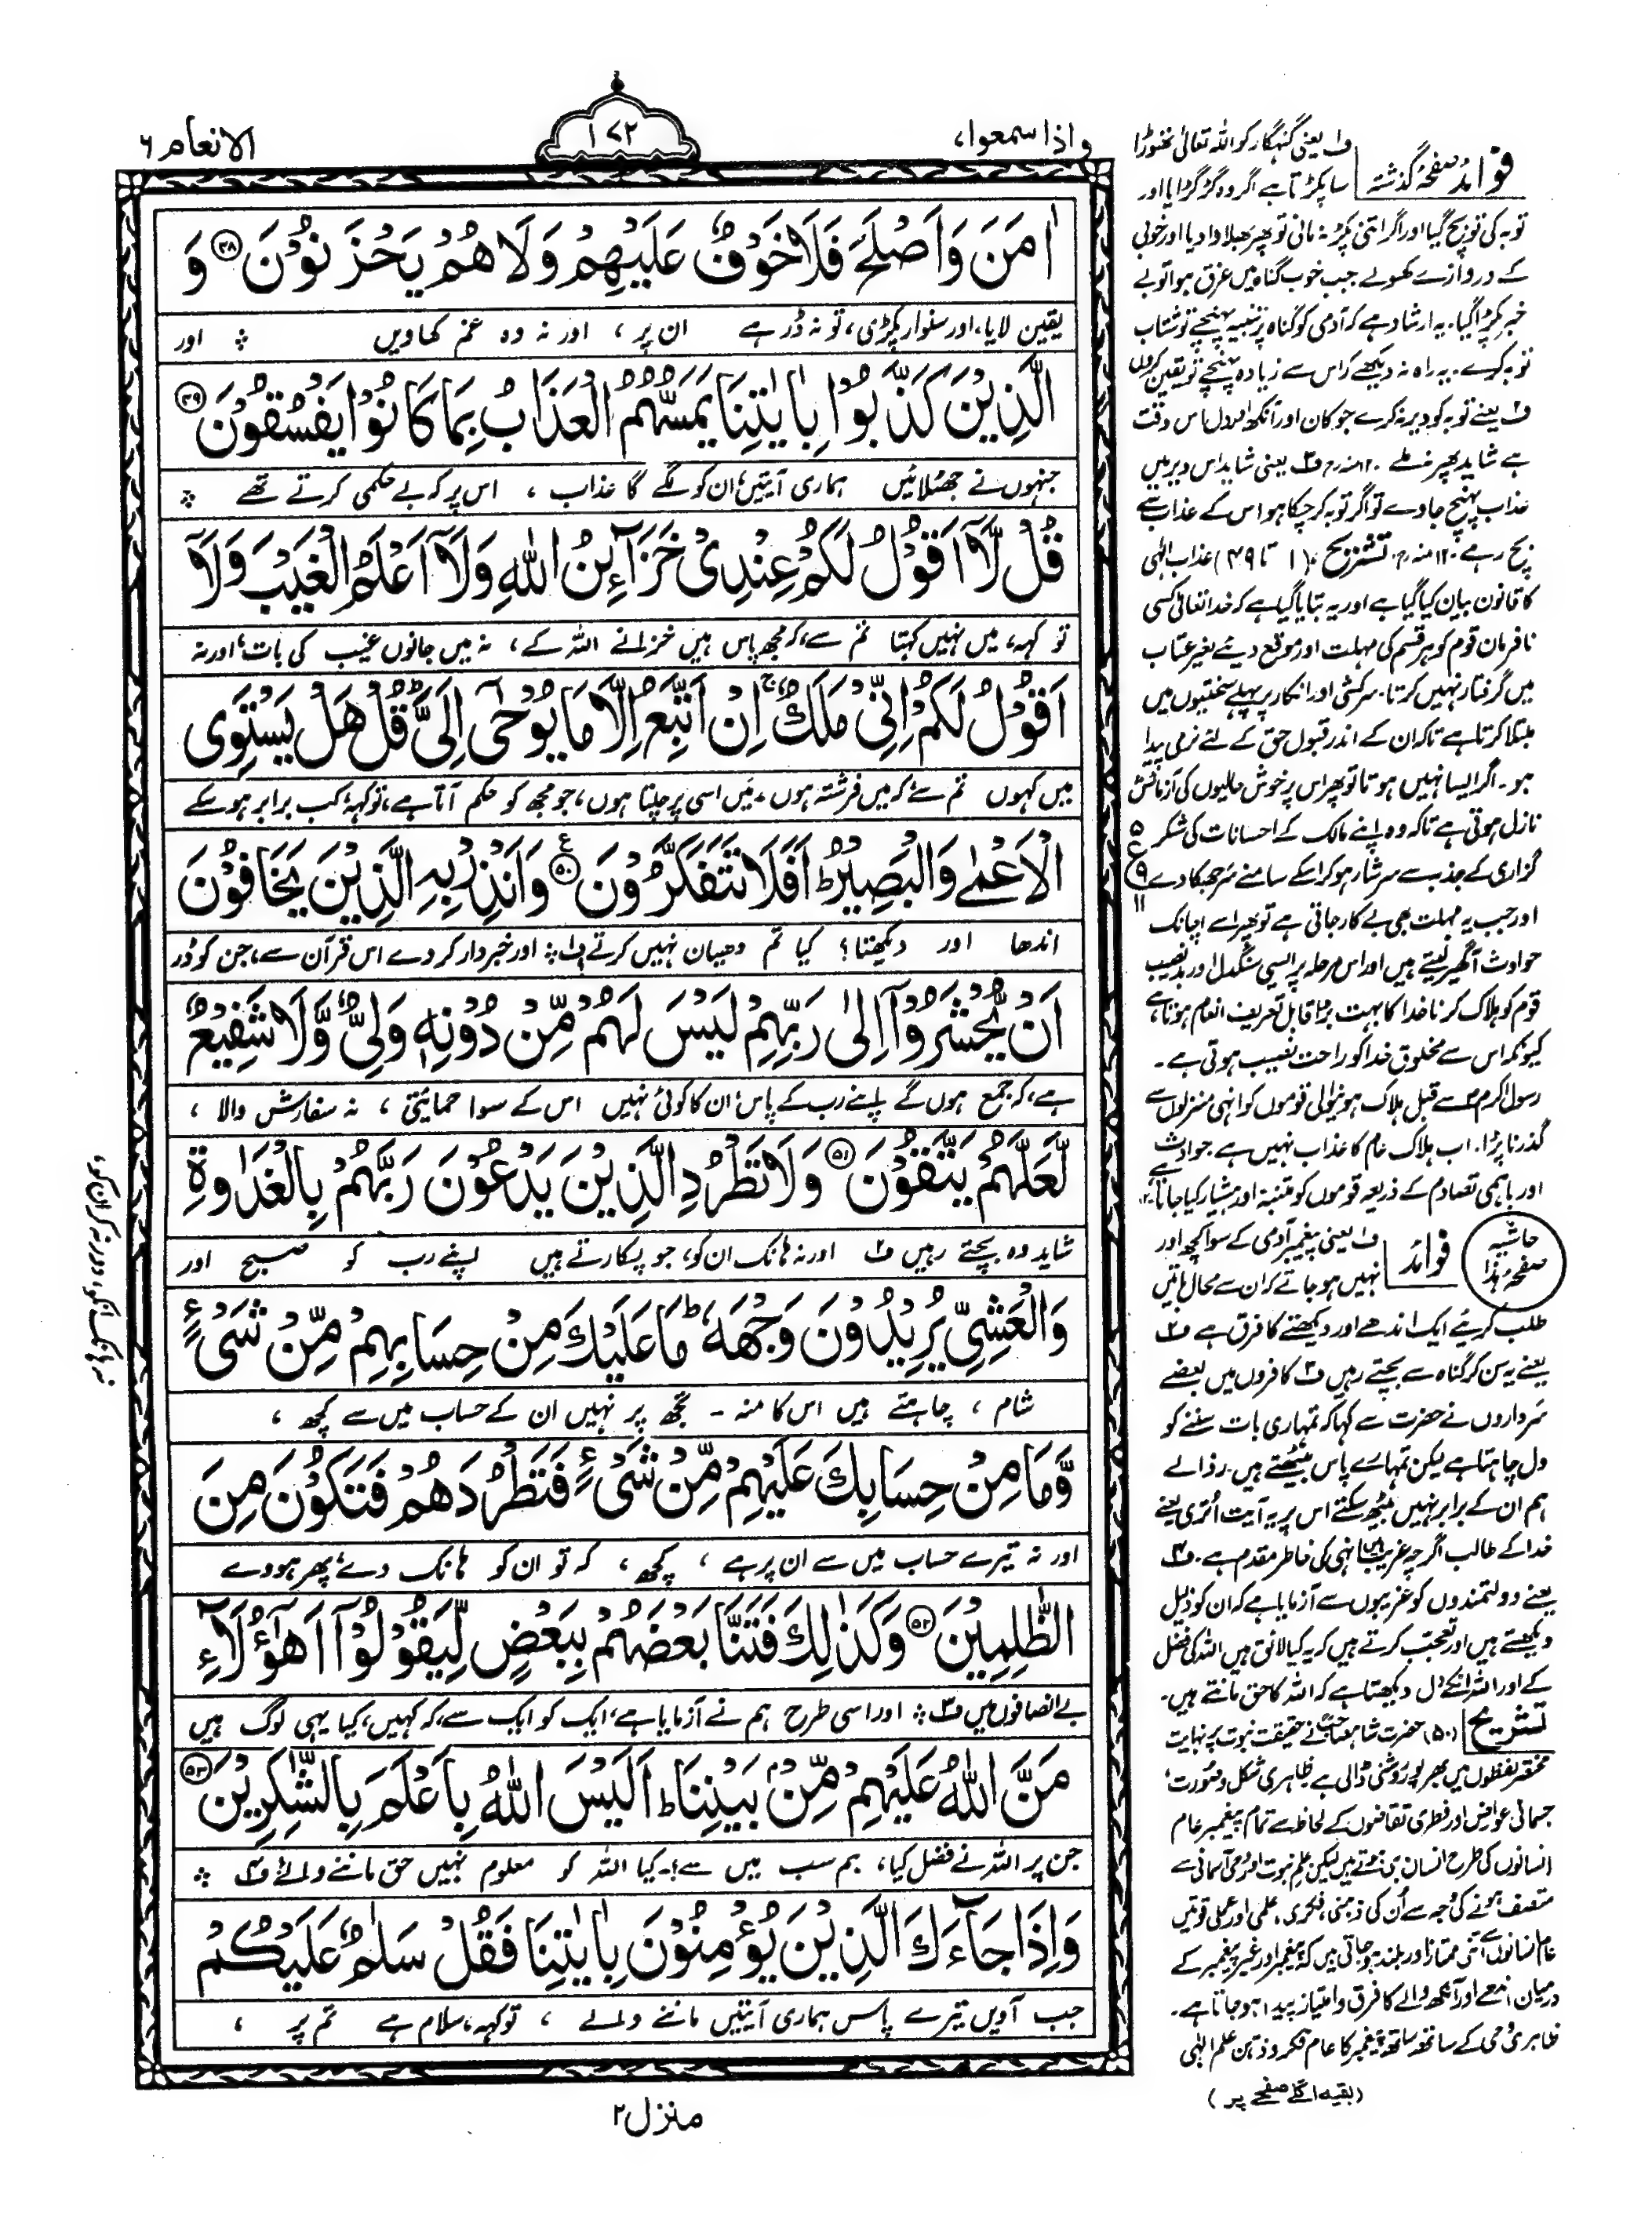 واذا سمعوا،
۱۷۲
الانعام ۶
اٰمَنَ وَاَصْلَحَ فَلَا خَوْفٌ عَلَيْهِمْ وَلَا هُمْ يَحْزَنُوْنَ ۴۸ وَ
یقین لایا، اور سنوار پکڑی، تو نہ ڈر ہے ان پر ، اور نہ وہ غم کھاویں ؞ اور
الَّذِيْنَ كَذَّبُوْا بِاٰيٰتِنَا يَمَسُّهُمُ الْعَذَابُ بِمَا كَانُوْا يَفْسُقُوْنَ ۴۹
جنہوں نے جھٹلائیں ہماری آیتیں، ان کو لگے گا عذاب ، اس پر کہ بے حکمی کرتے تھے ؞
قُلْ لَّاۤ اَقُوْلُ لَكُمْ عِنْدِىْ خَزَآئِنُ اللّٰهِ وَلَاۤ اَعْلَمُ الْغَيْبَ وَلَاۤ
تو کہہ، میں نہیں کہتا تم سے، کہ مجھ پاس ہیں خزانے اللہ کے ، نہ میں جانوں غیب کی بات، اور نہ
اَقُوْلُ لَكُمْ اِنِّىْ مَلَكٌ ۚ اِنْ اَتَّبِعُ اِلَّا مَا يُوْحٰۤى اِلَىَّ ؕ قُلْ هَلْ يَسْتَوِى
میں کہوں تم سے، کہ میں فرشتہ ہوں، میں اسی پر چلتا ہوں، جو مجھ کو حکم آتا ہے، تو کہہ، کب برابر ہو سکے
الْاَعْمٰى وَالْبَصِيْرُ ؕ اَفَلَا تَتَفَكَّرُوْنَ ۵۰ ع وَاَنْذِرْ بِهِ الَّذِيْنَ يَخَافُوْنَ
اندھا اور دیکھتا؟ کیا تم دھیان نہیں کرتے ف۱ ؞ اور خبردار کر دے اس قرآن سے، جن کو ڈر
اَنْ يُّحْشَرُوْۤا اِلٰى رَبِّهِمْ لَيْسَ لَهُمْ مِّنْ دُوْنِهٖ وَلِىٌّ وَّلَا شَفِيْعٌ
ہے، کہ جمع ہوں گے اپنے رب کے پاس، ان کا کوئی نہیں اس کے سوا حمایتی ، نہ سفارش والا ،
لَّعَلَّهُمْ يَتَّقُوْنَ ۵۱ وَلَا تَطْرُدِ الَّذِيْنَ يَدْعُوْنَ رَبَّهُمْ بِالْغَدٰوةِ
شاید وہ بچتے رہیں ف۲ اور نہ ہانک ان کو، جو پکارتے ہیں اپنے رب کو صبح اور
وَالْعَشِىِّ يُرِيْدُوْنَ وَجْهَهٗ ؕ مَا عَلَيْكَ مِنْ حِسَابِهِمْ مِّنْ شَىْءٍ
شام ، چاہتے ہیں اس کا منہ ۔ تجھ پر نہیں ان کے حساب میں سے کچھ ،
وَّمَا مِنْ حِسَابِكَ عَلَيْهِمْ مِّنْ شَىْءٍ فَتَطْرُدَهُمْ فَتَكُوْنَ مِنَ
اور نہ تیرے حساب میں سے ان پر ہے ، کچھ ، کہ تو ان کو ہانک دے، پھر ہووے
الظّٰلِمِيْنَ ۵۲ وَكَذٰلِكَ فَتَنَّا بَعْضَهُمْ بِبَعْضٍ لِّيَقُوْلُوْۤا اَهٰۤؤُلَآءِ
بے انصافوں میں ف۳ ؞ اور اسی طرح ہم نے آزمایا ہے، ایک کو ایک سے، کہ کہیں، کیا یہی لوگ ہیں
مَنَّ اللّٰهُ عَلَيْهِمْ مِّنْۢ بَيْنِنَا ؕ اَلَيْسَ اللّٰهُ بِاَعْلَمَ بِالشّٰكِرِيْنَ ۵۳
جن پر اللہ نے فضل کیا، ہم سب میں سے؟۔ کیا اللہ کو معلوم نہیں حق ماننے والے؟ ف۴ ؞
وَاِذَا جَآءَكَ الَّذِيْنَ يُؤْمِنُوْنَ بِاٰيٰتِنَا فَقُلْ سَلٰمٌ عَلَيْكُمْ
جب آویں تیرے پاس ہماری آیتیں ماننے والے ، تو کہہ، سلام ہے تم پر ،
منزل۲
فوائد صفحہ گذشتہ
ف۱ یعنی گنہگار کو اللہ تعالیٰ تھوڑا
سا پکڑتا ہے اگر وہ گڑگڑایا اور
توبہ کی تو بچ گیا اور اگر اتنی پکڑ نہ مانی تو پھر بھلاوا دیا اور خوبی
کے دروازے کھولے جب خوب گناہ میں غرق ہوا تو بے
خبر پکڑا گیا۔ یہ ارشاد ہے کہ آدمی کو گناہ پر تنبیہ پہنچے تو شتاب
توبہ کرے۔ یہ راہ نہ دیکھے کہ اس سے زیادہ پہنچے تو یقین کروں
ف۲ یعنے توبہ کو دیر نہ کرے جو کان اور آنکھ اور دل اس وقت
ہے شاید پھر نہ ملے۔ ۱۲منہ رح ف۳ یعنی شاید اس دیر میں
عذاب پہنچ جاوے تو اگر توبہ کر چکا ہو اس کے عذاب سے
بچ رہے۔ ۱۲ منہ رح تشریح (۱ تا ۴۹) عذاب الٰہی
کا قانون بیان کیا گیا ہے اور یہ بتایا گیا ہے کہ خدا تعالیٰ کسی
نافرمان قوم کو ہر قسم کی مہلت اور موقع دیئے بغیر عتاب
میں گرفتار نہیں کرتا۔ سرکشی اور انکار پر پہلے سختیوں میں
مبتلا کرتا ہے تاکہ ان کے اندر قبول حق کے لئے نرمی پیدا
ہو۔ اگر ایسا نہیں ہوتا تو پھر اس پر خوش حالیوں کی آزمائش
نازل ہوتی ہے تاکہ وہ اپنے مالک کے احسانات کی شکر
گزاری کے جذبہ سے سرشار ہو کر اسکے سامنے سر جھکا دے
۵
ع
۹
۱۱
اور جب یہ مہلت بھی بے کار جاتی ہے تو پھر اسے اچانک
حوادث آ گھیر لیتے ہیں اور اس مرحلہ پر ایسی سنگدل اور بدنصیب
قوم کو ہلاک کرنا خدا کا بہت بڑا قابل تعریف انعام ہوتا ہے
کیونکہ اس سے مخلوق خدا کو راحت نصیب ہوتی ہے۔
رسول اکرم ﷺ سے قبل ہلاک ہونیوالی قوموں کو انہی منزلوں سے
گذرنا پڑا۔ اب ہلاک عام کا عذاب نہیں ہے حوادث
اور باہمی تصادم کے ذریعہ قوموں کو متنبہ اور ہشیار کیا جاتا ہے۱۲
حاشیہ صفحہ ہذا
فوائد
ف۱ یعنی پیغمبر آدمی کے سوا کچھ اور
نہیں ہو جاتے کہ ان سے محال باتیں
طلب کریئے ایک اندھے اور دیکھتے کا فرق ہے ف۲
یعنے یہ سن کر گناہ سے بچتے رہیں ف۳ کافروں میں بعضے
سرداروں نے حضرت سے کہا کہ تمہاری بات سننے کو
دل چاہتا ہے لیکن تمہارے پاس بیٹھتے ہیں۔ رذالے
ہم ان کے برابر نہیں بیٹھ سکتے اس پر یہ آیت اتری یعنے
خدا کے طالب اگرچہ غریب ہیں انہی کی خاطر مقدم ہے۔ ف۴
یعنے دولتمندوں کو غریبوں سے آزمایا ہے کہ ان کو ذلیل
دیکھتے ہیں اور تعجب کرتے ہیں کہ یہ کیا لائق ہیں اللہ کی فضل
کے اور اللہ انکے دل دیکھتا ہے کہ اللہ کا حق مانتے ہیں۔
تشریح (۵۰) حضرت شاہ صاحبؒ نے حقیقت نبوت پر نہایت
مختصر لفظوں میں بھرپور روشنی ڈالی ہے ظاہری شکل و صورت،
جسمانی عوارض اور فطری تقاضوں کے لحاظ سے تمام پیغمبر عام
انسانوں کی طرح انسان ہی ہوتے ہیں لیکن علم نبوت اور وحی آسمانی سے
متصف ہونے کی وجہ سے اُن کی ذہنی، فکری، علمی اور عملی قوتیں
عام انسانوں سے اتنی ممتاز اور بلند ہو جاتی ہیں کہ پیغمبر اور غیر پیغمبر کے
درمیان اندھے اور آنکھ والے کا فرق و امتیاز پیدا ہو جاتا ہے۔
ظاہری وحی کے ساتھ ساتھ پیغمبر کا عام فکر و ذہن علم الٰہی
(بقیہ اگلے صفحے پر)